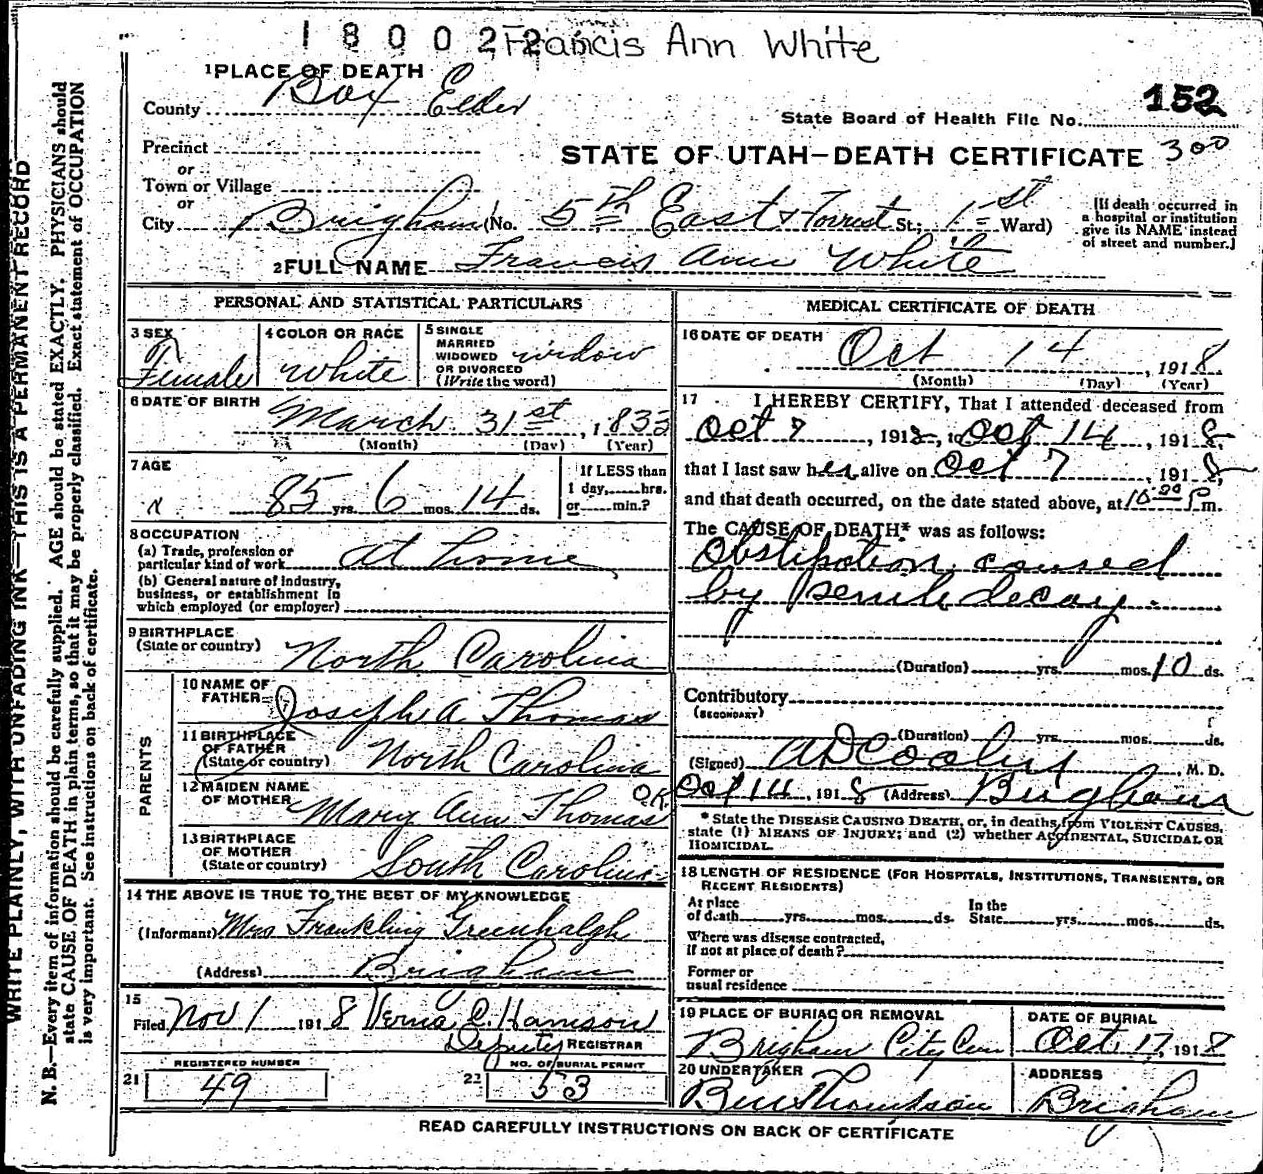 1800222 Francis Ann White
1 PLACE OF DEATH
County Box Elder
152
State Board of Health File No.
Precinct
STATE OF UTAH—DEATH CERTIFICATE 300
or
Town or Village
or
City Brigham (No. 5th East & Forrest St.; 1st Ward)
[If death occurred in
a hospital or institution
give its NAME instead
of street and number.]
2 FULL NAME Francis Ann White
PERSONAL AND STATISTICAL PARTICULARS
3 SEX
Female
4 COLOR OR RACE
White
5 SINGLE
MARRIED
WIDOWED
OR DIVORCED
(Write the word)
widow
6 DATE OF BIRTH
March 31st, 1833
(Month) (Day) (Year)
7 AGE
85 yrs. 6 mos. 14 ds.
If LESS than
1 day,......hrs.
or......min.?
8 OCCUPATION
(a) Trade, profession or
particular kind of work at home
(b) General nature of industry,
business, or establishment in
which employed (or employer)
9 BIRTHPLACE
(State or country) North Carolina
PARENTS
10 NAME OF
FATHER Joseph A Thomas
11 BIRTHPLACE
OF FATHER
(State or country) North Carolina
12 MAIDEN NAME
OF MOTHER Mary Ann Thomas O.K.
13 BIRTHPLACE
OF MOTHER
(State or country) South Carolina
14 THE ABOVE IS TRUE TO THE BEST OF MY KNOWLEDGE
(Informant) Mrs Frankling Greenhalgh
(Address) Brigham
15
Filed Nov 1 1918 Verna C. Hamson
Deputy REGISTRAR
REGISTERED NUMBER
21 49
NO. OF BURIAL PERMIT
22 53
MEDICAL CERTIFICATE OF DEATH
16 DATE OF DEATH Oct 14, 1918
(Month) (Day) (Year)
17 I HEREBY CERTIFY, That I attended deceased from
Oct 7, 1918, to Oct 14, 1918,
that I last saw her alive on Oct 7, 1918,
and that death occurred, on the date stated above, at 10:00 P m.
The CAUSE OF DEATH* was as follows:
Obstipation caused
by Senile decay.
(Duration) yrs. mos. 10 ds.
Contributory
(SECONDARY)
(Duration) yrs. mos. ds.
(Signed) AD Cooley M. D.
Oct 14, 1918 (Address) Brigham
* State the DISEASE CAUSING DEATH, or, in deaths from VIOLENT CAUSES,
state (1) MEANS OF INJURY; and (2) whether ACCIDENTAL, SUICIDAL OR
HOMICIDAL.
18 LENGTH OF RESIDENCE (FOR HOSPITALS, INSTITUTIONS, TRANSIENTS, OR
RECENT RESIDENTS)
At place
of death yrs. mos. ds.
In the
State yrs. mos. ds.
Where was disease contracted,
If not at place of death?
Former or
usual residence
19 PLACE OF BURIAL OR REMOVAL
Brigham City Cem
DATE OF BURIAL
Oct 17, 1918
20 UNDERTAKER
Ben Thompson
ADDRESS
Brigham
READ CAREFULLY INSTRUCTIONS ON BACK OF CERTIFICATE
WRITE PLAINLY, WITH UNFADING INK—THIS IS A PERMANENT RECORD
N. B.—Every item of information should be carefully supplied. AGE should be stated EXACTLY. PHYSICIANS should
state CAUSE OF DEATH in plain terms, so that it may be properly classified. Exact statement of OCCUPATION
is very important. See instructions on back of certificate.